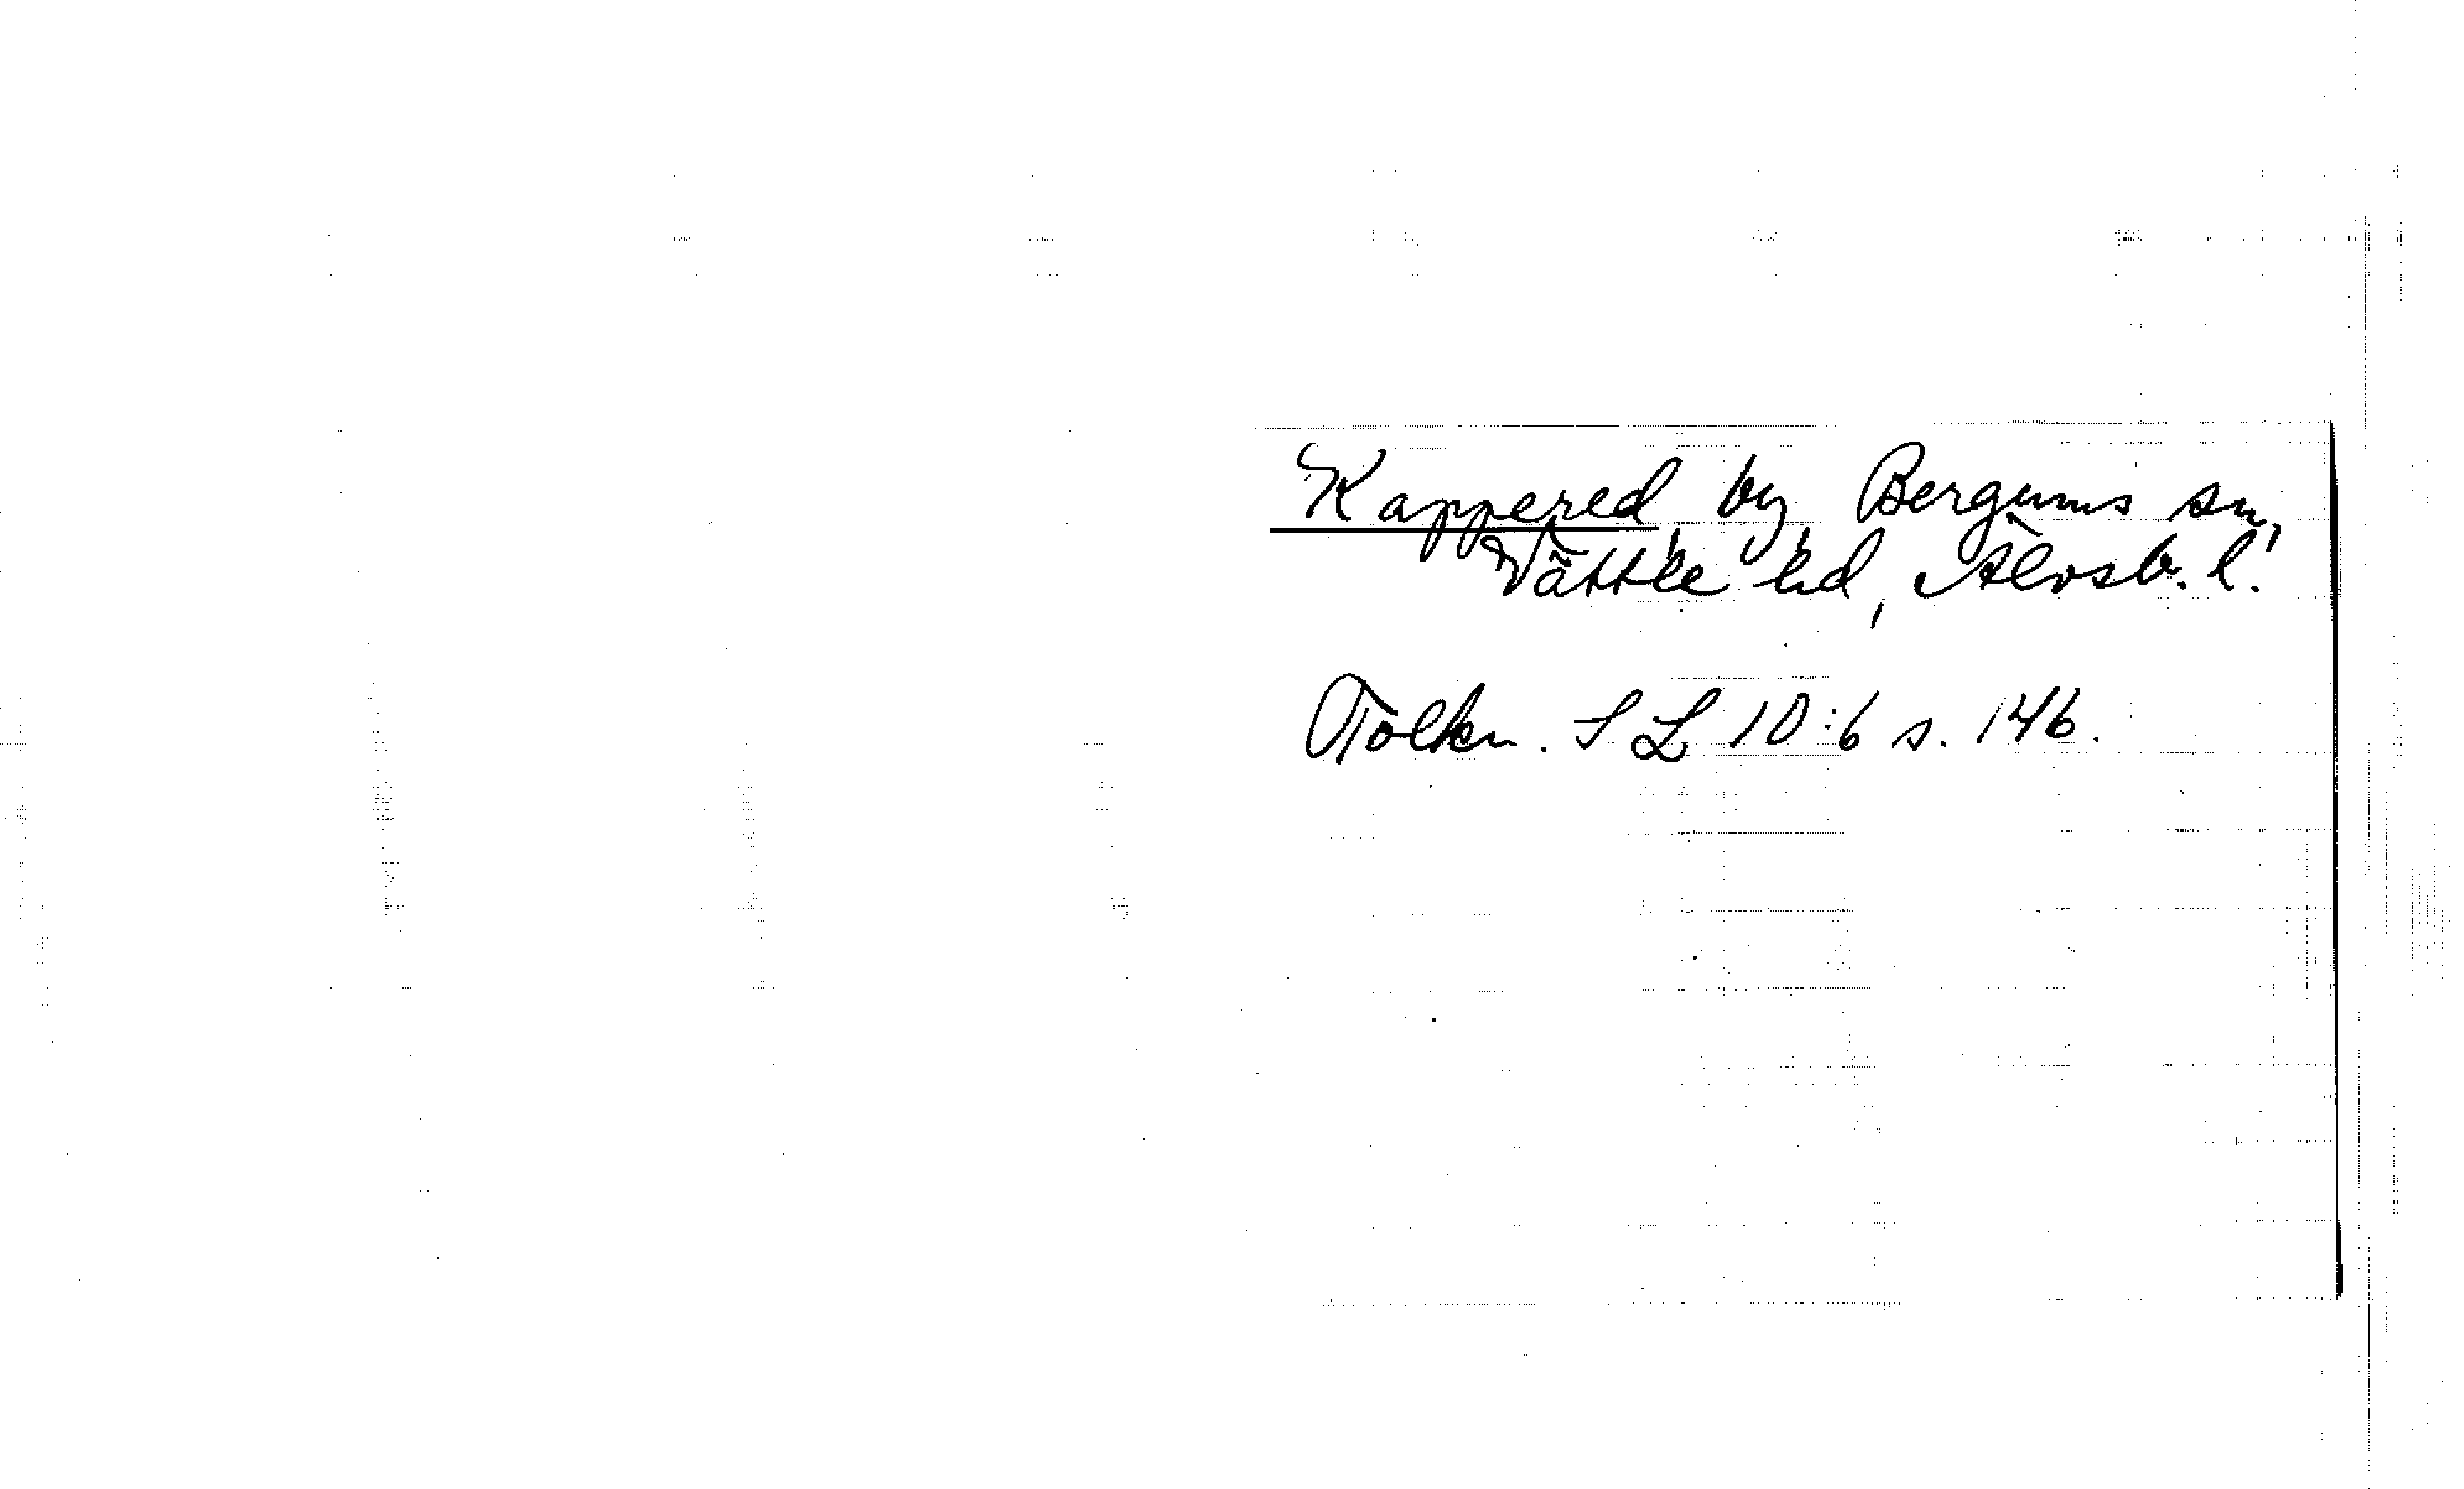 Kappered, by, Bergums sn,
Vättle hd, Älvsb. l.
Tolkn. SL 10:6 s. 146.